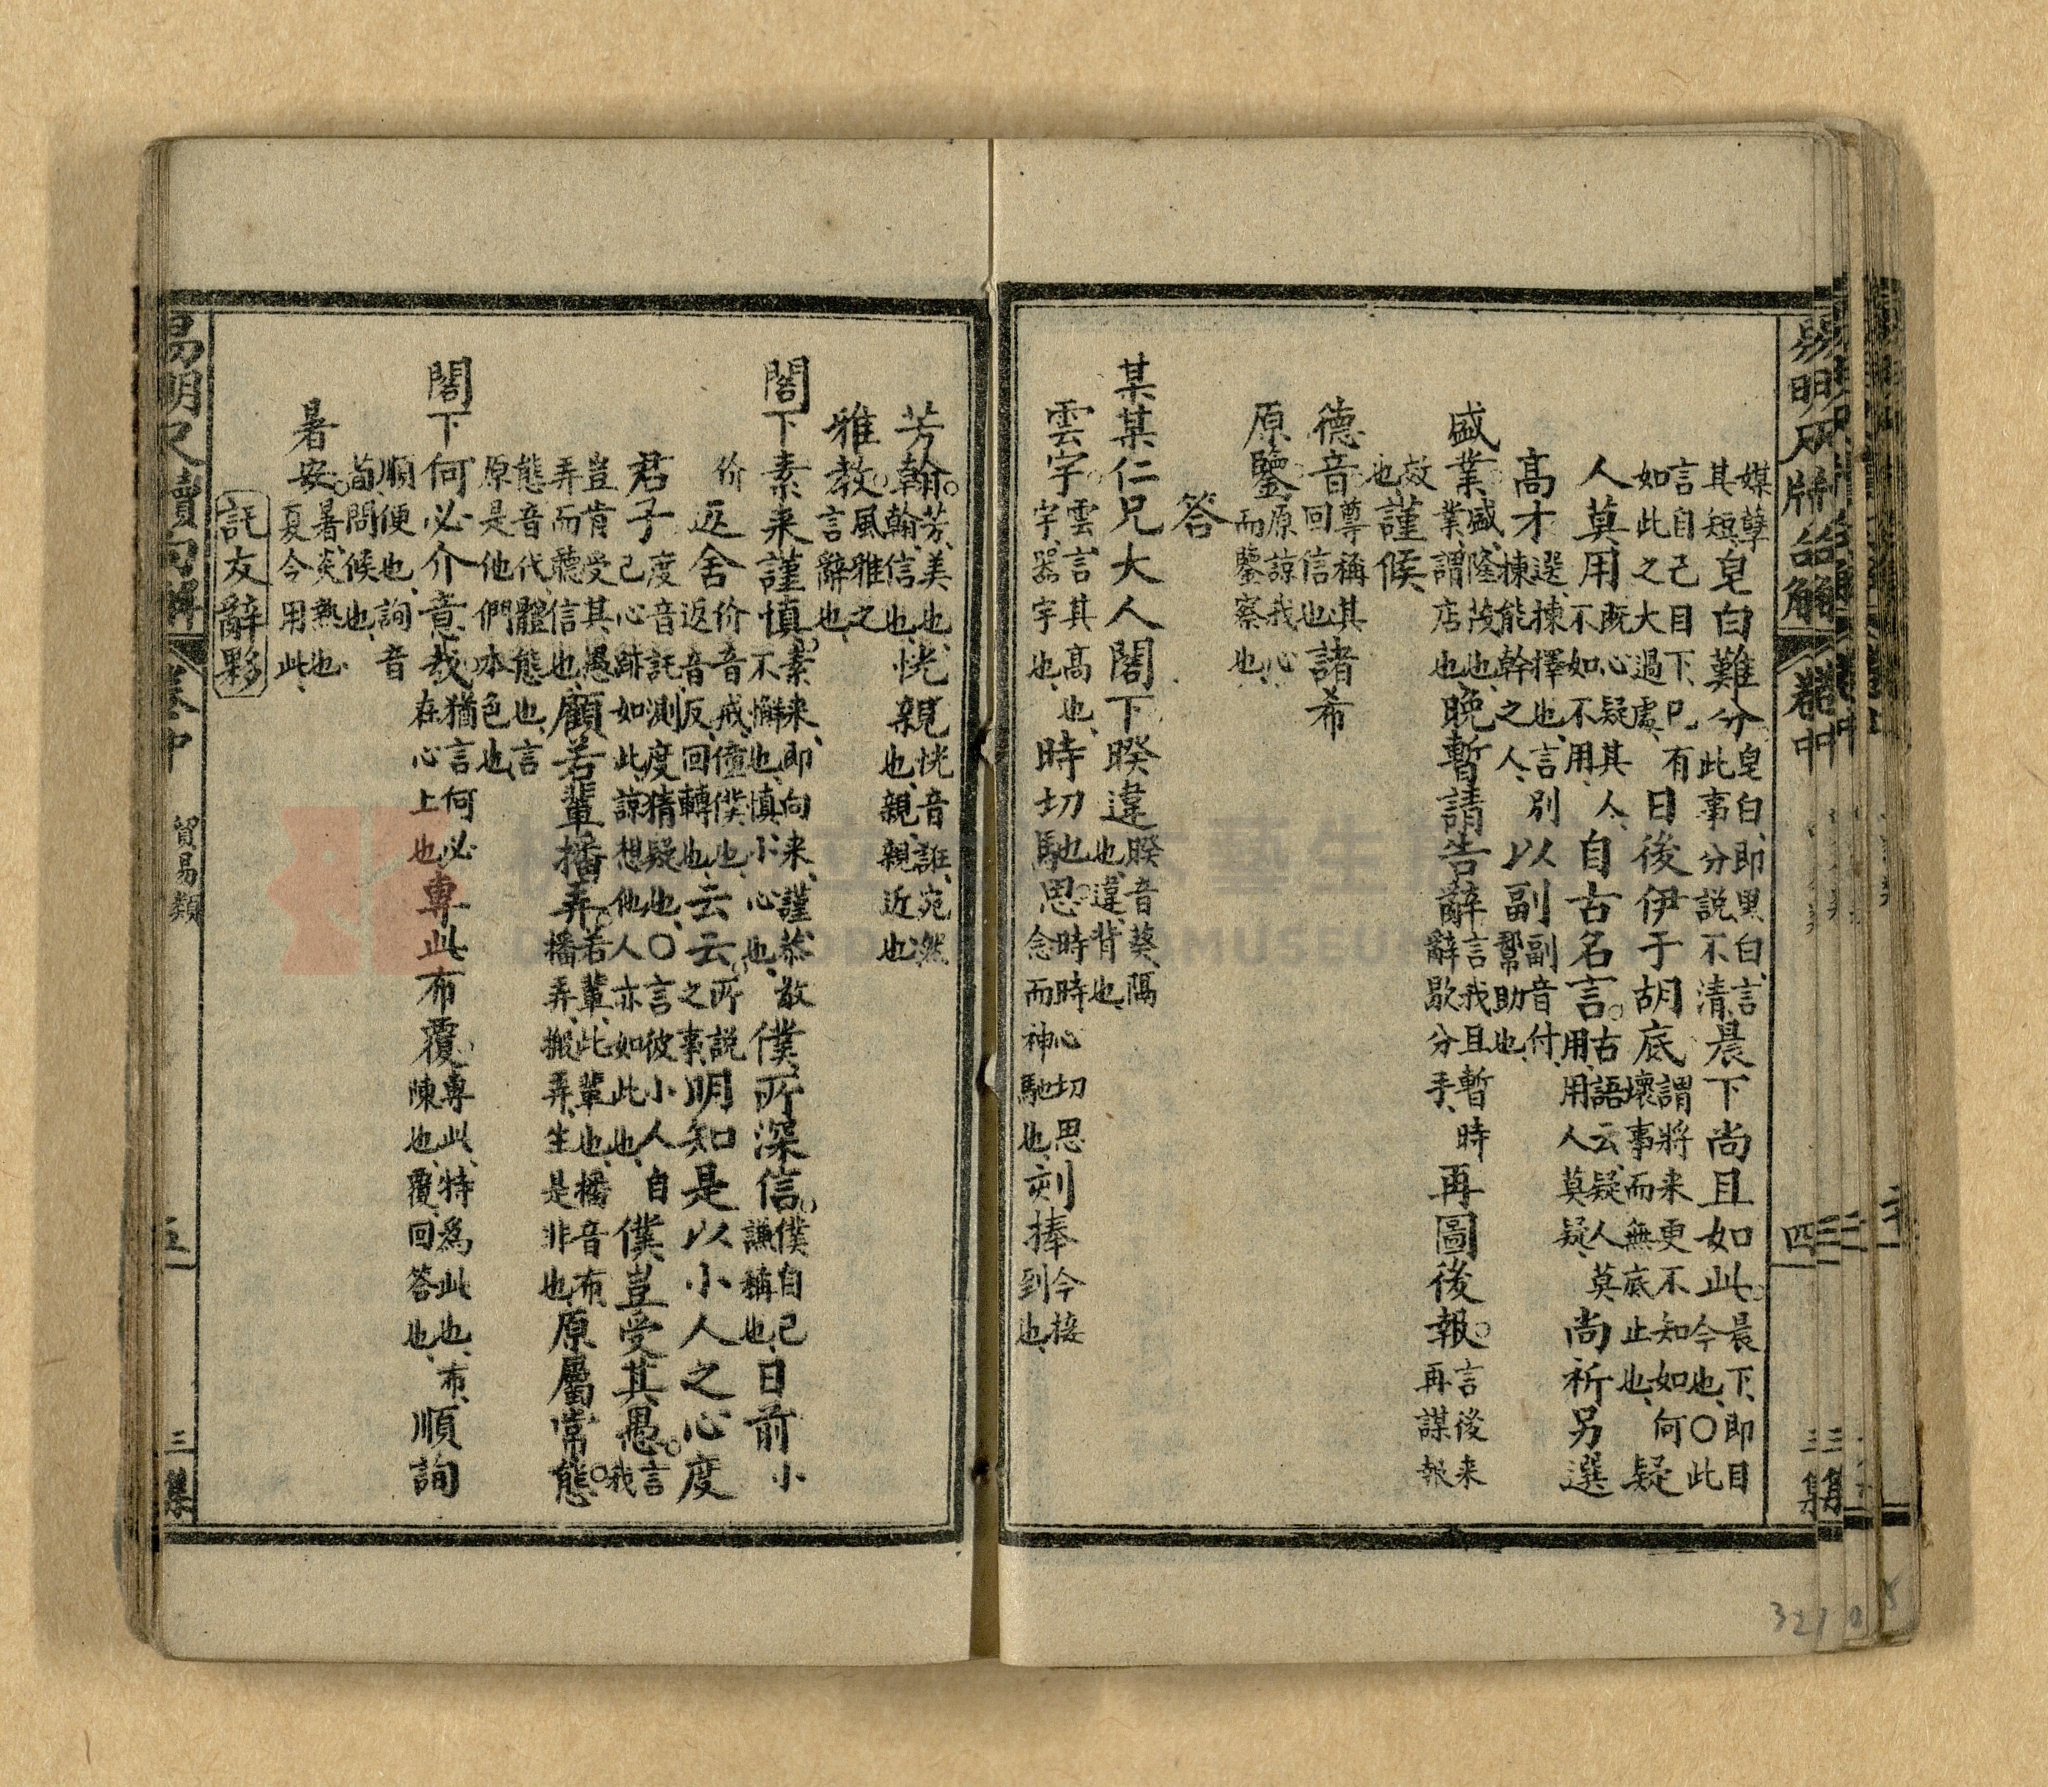 媒孽其短皂白難分皂白、即黑白、言此事分説不清、晨下尚且如此晨下、即目今也、〇此
言自己目下已有如此之大過處、日後伊于胡底謂將来更不知如何壞事而無底止也、疑
人莫用既心疑其人、不如不用、自古名言古語云、疑人莫用、用人莫疑、尚祈另選
高才選、揀擇也、言揀能幹之人、別以副副音付、幫助也、
盛業盛、隆茂也、業謂店也、晚暫請告辭言我且暫時辭歇分手、再圖後報言後来再謀報
效也謹候
德音尊稱其回信也諸希
原鑒原諒我心而鑒察也、
答
某某仁兄大人閣下暌違暌音葵、隔也、違、背也、
雲宇雲、言其高也、宇、器宇也、時切馳思時時心切思念而神馳也、刻捧今接到也、
芳翰芳、美也、翰、信也、恍親恍音謊、宛然也、親、親近也
雅教風雅之言辭也、
閣下素来謹慎素来、即向来、謹、恭敬不懈也、慎、小心也、僕所深信僕自己謙稱也、日前小
价返舍价音戒、僮僕也、返音反、回轉也、云云所説之事、明知是以小人之心度
君子度音託、測度猜疑也、〇言彼小人自己心跡如此、諒想他人亦如此也、僕豈受其愚言我
豈肯受其愚弄而聽信也、顧若輩播弄若輩、此輩也、播音布、播弄、搬弄、生是非也、原屬常態
態音代、體態也、言原是他們本色也、
閣下何必介意哉猶言何必在心上也、專此布覆專此、特為此也、布、陳也、覆、回答也、順詢
順便也、詢音荀、問候也、
暑安暑、炎熱也、夏今用此、
託友辭夥
卷中
貿易類
四
三集